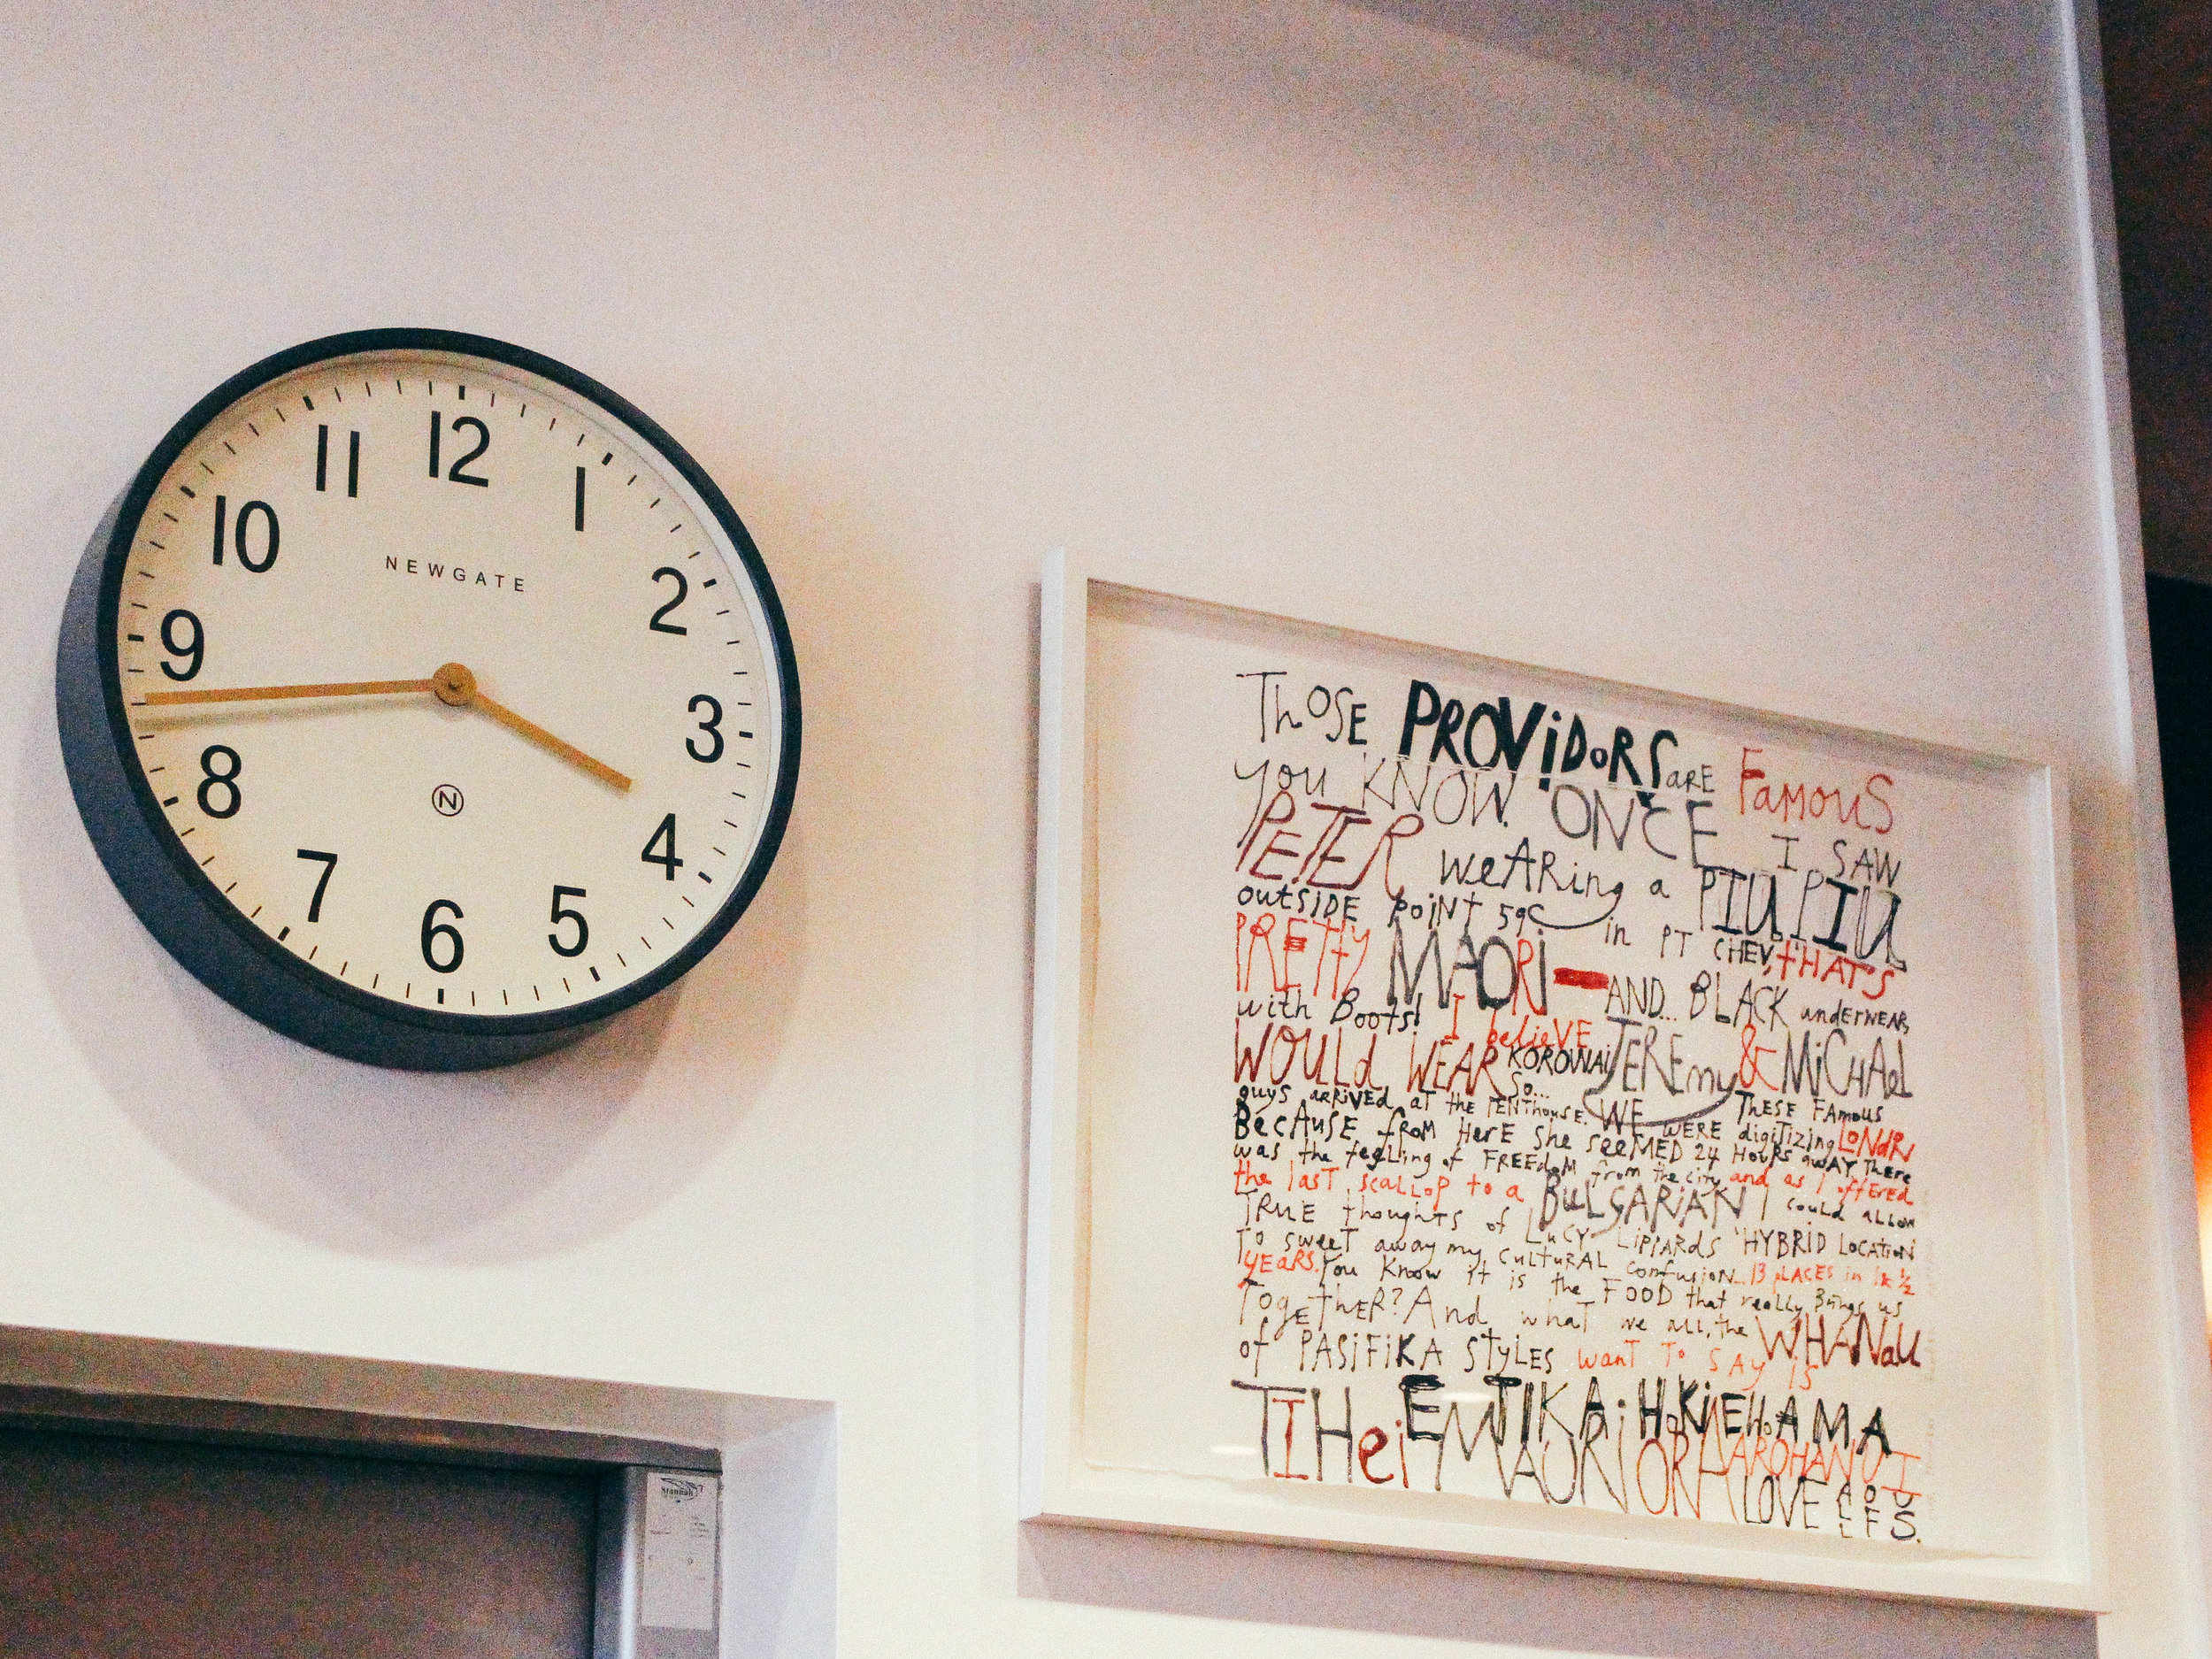 12
11
1
10
2
NEWGATE
9
3
8
N
4
7
5
6
Stannah
Those PROViDoRS are Famous
you KNOW. ONCE I SAW
PETER weARing a PIUPIU
outSIDE poiNt 59C in PT CHEV, tHAT'S
PREtty MAORi - AND... BLACK underwear,
with Boots! I believE
WOULd WEAR KOROWAi JEREmy & MiCHAel
So...
guys arrived at the PENThouse. WE THESE FAmous
BecAUSE fROM HerE She seeMED 24 HOURS awAY, There
WERE digitizing LONdN
was the feeling of FREEdoM from the city and as I offered
the last scaLLoP to a BuLGARiAN I could allow
TRUE thoughts of LuCY LiPPARds 'HYBRID LOCATioN
To sweeT away my CULTURAL confusioN... 13 pLACES in 1 1/2
YEARS. You Know it is the FOOD that really Brings us
TogETHER? And what we all, the WHANaU
of PASiFiKA StyLES want To SAY is
E TIKA Hoki EHoAMA
TIHei MAURi ORA AROHANUI
LOVE